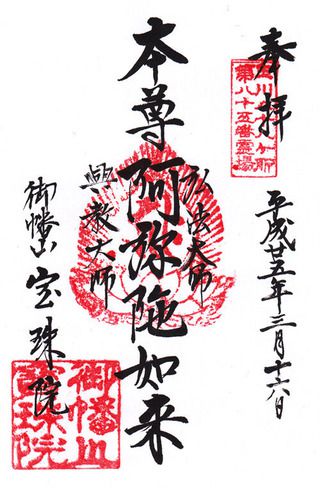 奉拝
第八十五番霊場
平成廿五年三月十六日
弘法大師
本尊 阿弥陀如来
興教大師
御幡山 宝珠院
御幡山
宝珠院